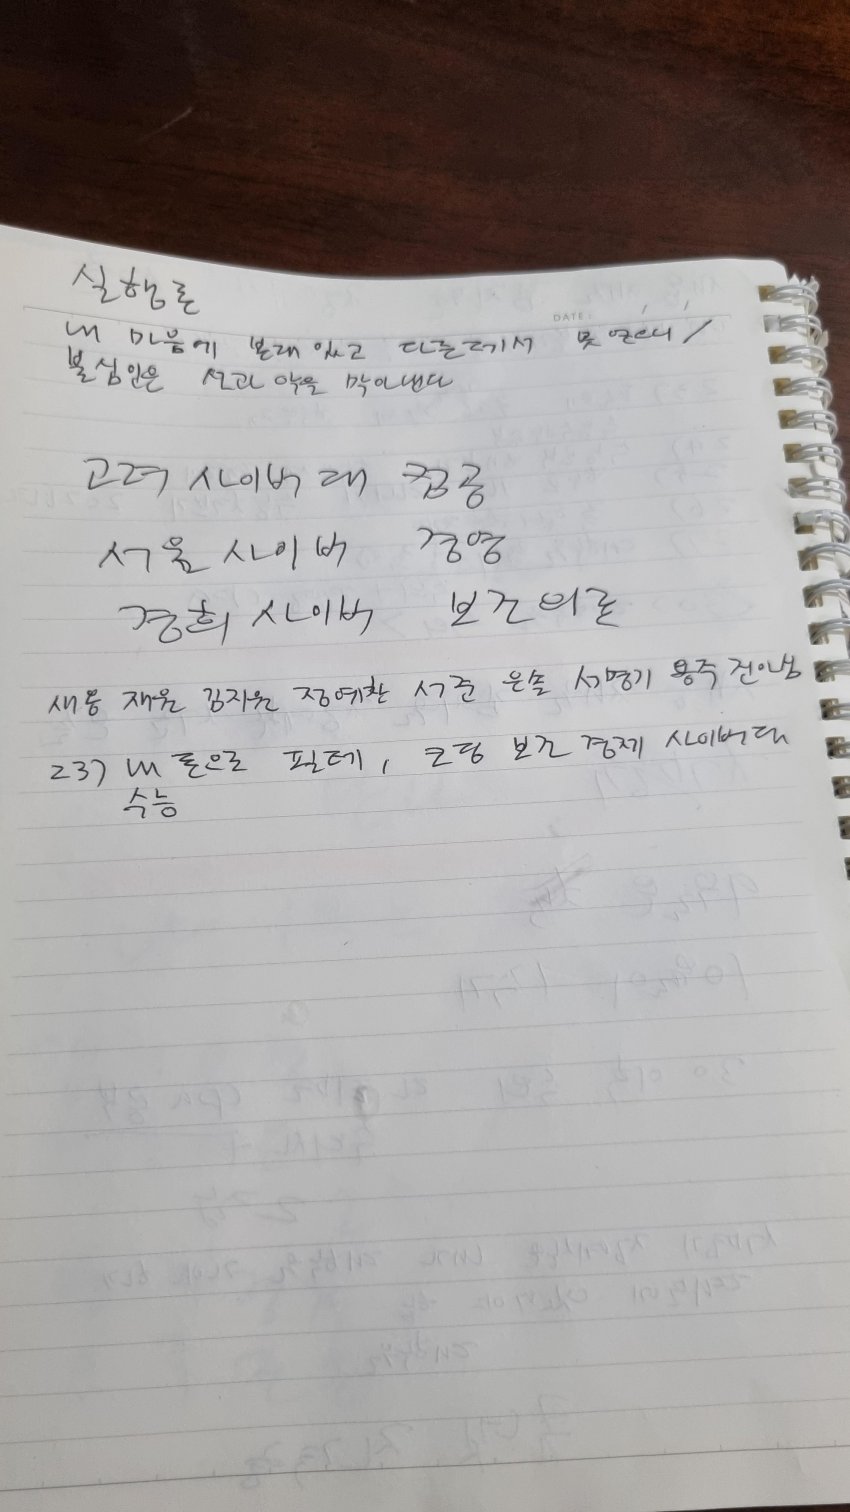 실행론
DATE:
내 마음에 본래 있고 다른데서 못 얻나니 /
불심인은 선과 악을 막아낸다
고려 사이버 대 컴공
서울 사이버 경영
경희 사이버 보건의료
새롬 재윤 김지원 정예찬 서준 은솔 서명기 용주
237 내 돈으로 필테, 코딩 보건 경제 사이버대
수능